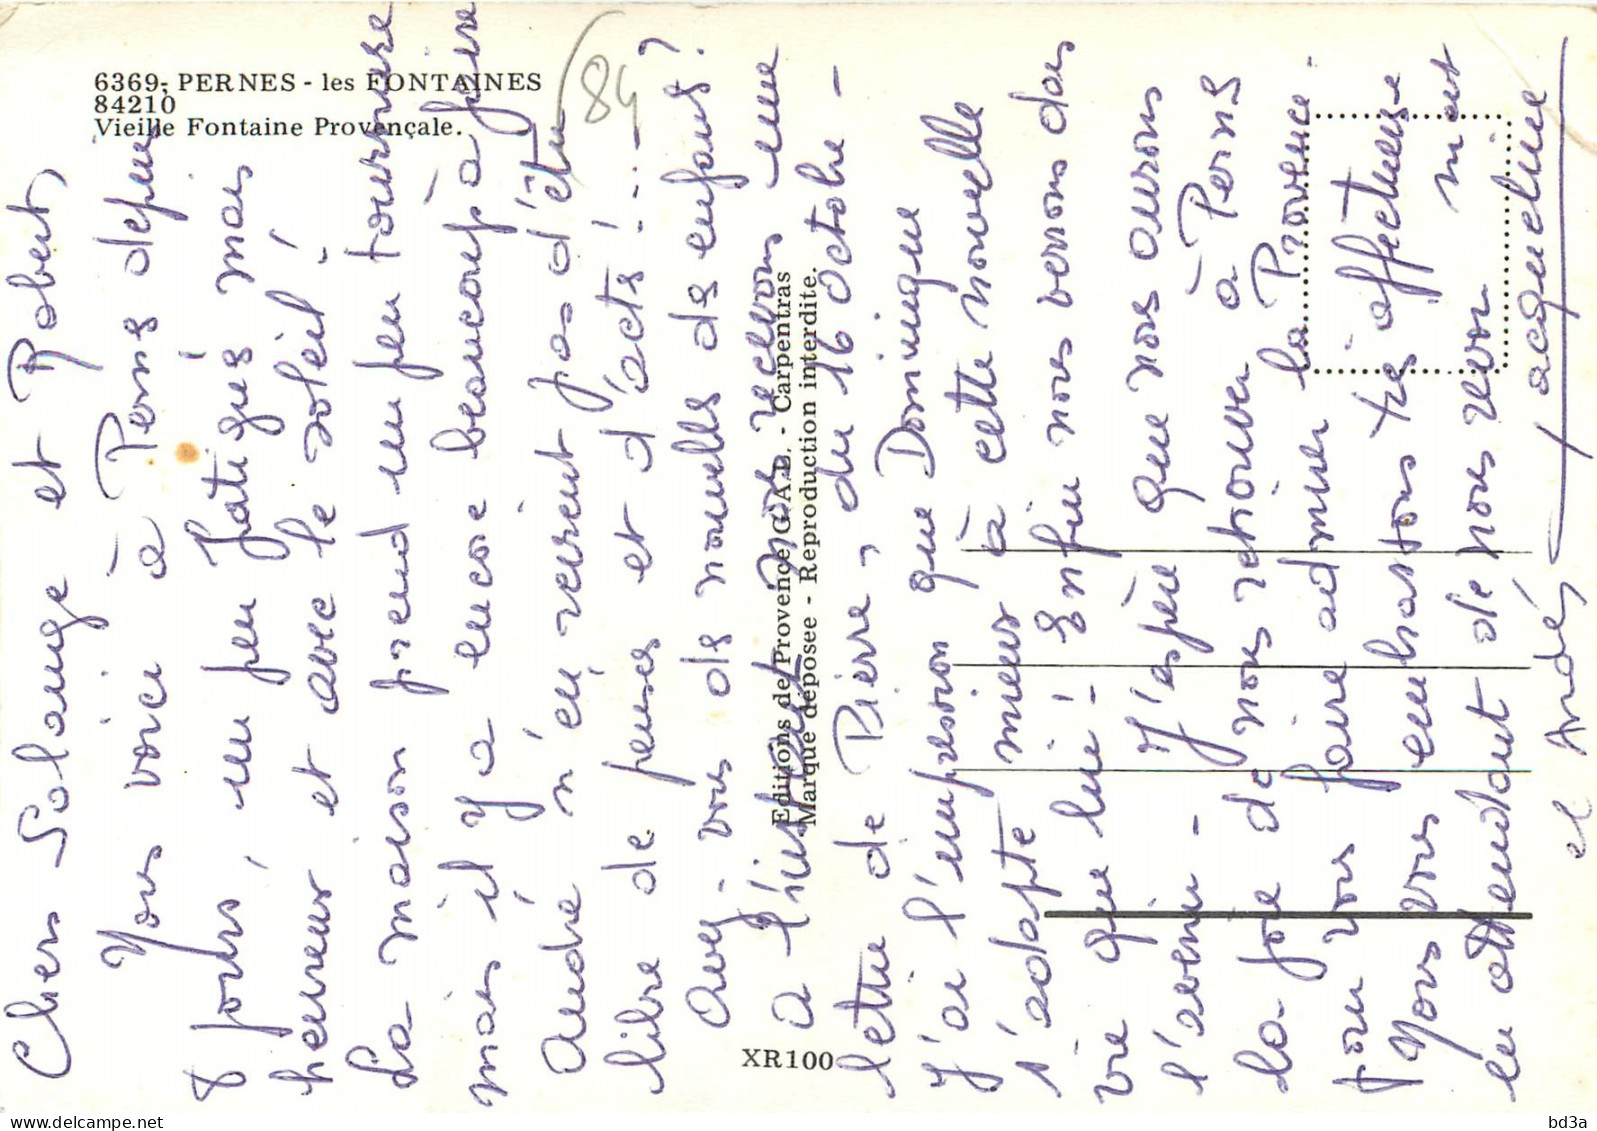 6369- PERNES - les FONTAINES
84210
Vieille Fontaine Provençale.
84
Editions de Provence G.A.L. - Carpentras
Marque déposée - Reproduction interdite.
XR100
Chers Solange et Robert,
Nous voici à Pernes depuis
8 jours, un peu fatigués mais
heureux et avec le soleil !
La maison prend un peu tournure
mais il y a encore beaucoup à faire
André n'en revient pas d'être
libre de penser et d'acte ! ...
Avez-vous des nouvelles des enfants ?
A l'instant nous recevons une
lettre de Pierre, du 16 octobre -
J'ai l'impression que Dominique
s'adapte mieux à cette nouvelle
vie que lui ! Enfin nous verrons dans
l'avenir - J'espère que nous aurons
la joie de nous retrouver à Pernes
pour vous faire admirer la Provence.
Nous vous embrassons très affectueusement
en attendant de nous revoir
Jacqueline
et André